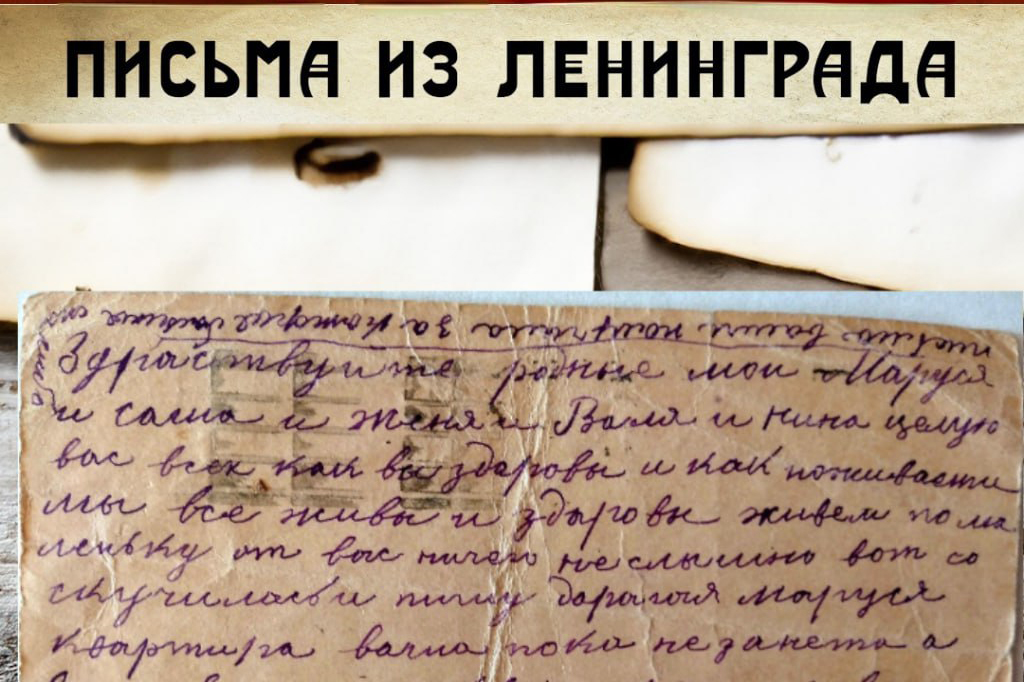 ПИСЬМА ИЗ ЛЕНИНГРАДА
письмо ваши за которые
Здраствуите родные мои Маруся
и саша и женя и Валя и Нина целую
вас всех как вы здаровы и как поживаети
мы все живы и здыровы живем пома
леньку от вас ничего не слышно вот со
скучиласьи пишу дарагая маруся
квартира ваша пока не занета а